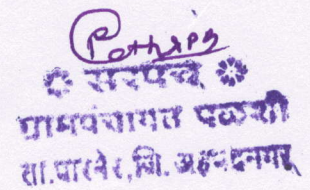 सरपंच
ग्रामपंचायत पळशी
ता.पारनेर,जि.अहमदनगर